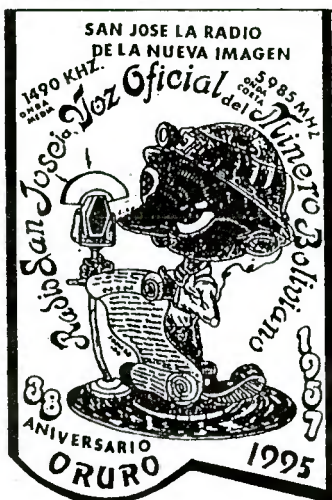 SAN JOSE LA RADIO
DE LA NUEVA IMAGEN
1490 KHZ.
ONDA
MEDIA
5985 MHZ
ONDA
CORTA
Radio San Jose la Voz Oficial del Minero Boliviano
38
ANIVERSARIO
ORURO
1957
1995